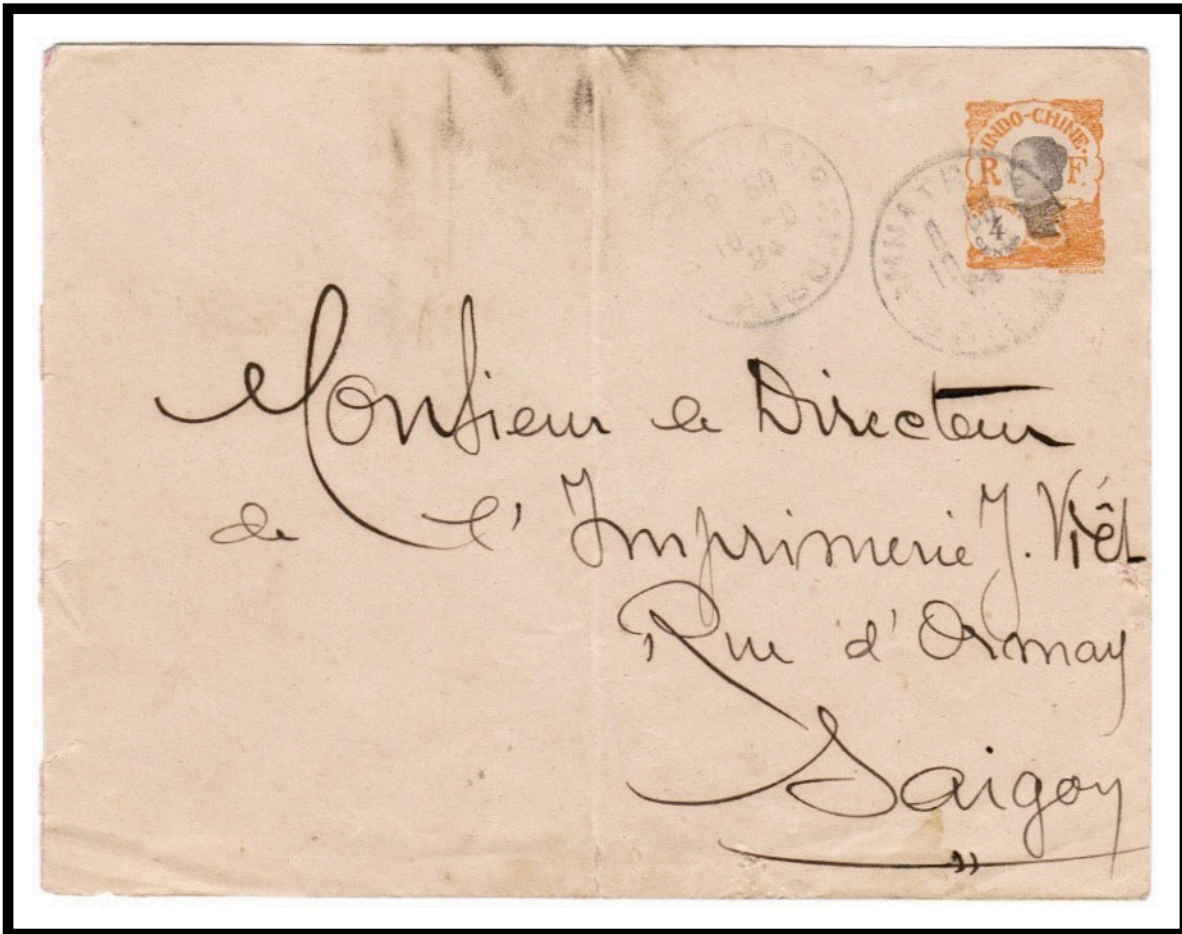 INDO-CHINE
R F.
4
Monsieur le Directeur
de l'Imprimerie J. Viêt
Rue d'Ormay
Saigon